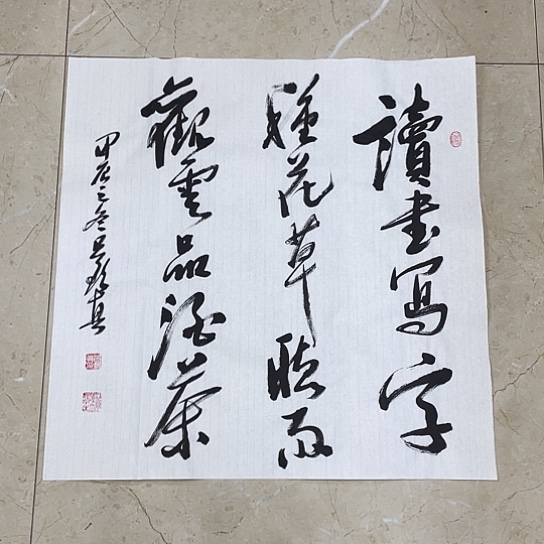 讀書寫字
種花草聽雨
觀雲品酒茶
甲辰之冬